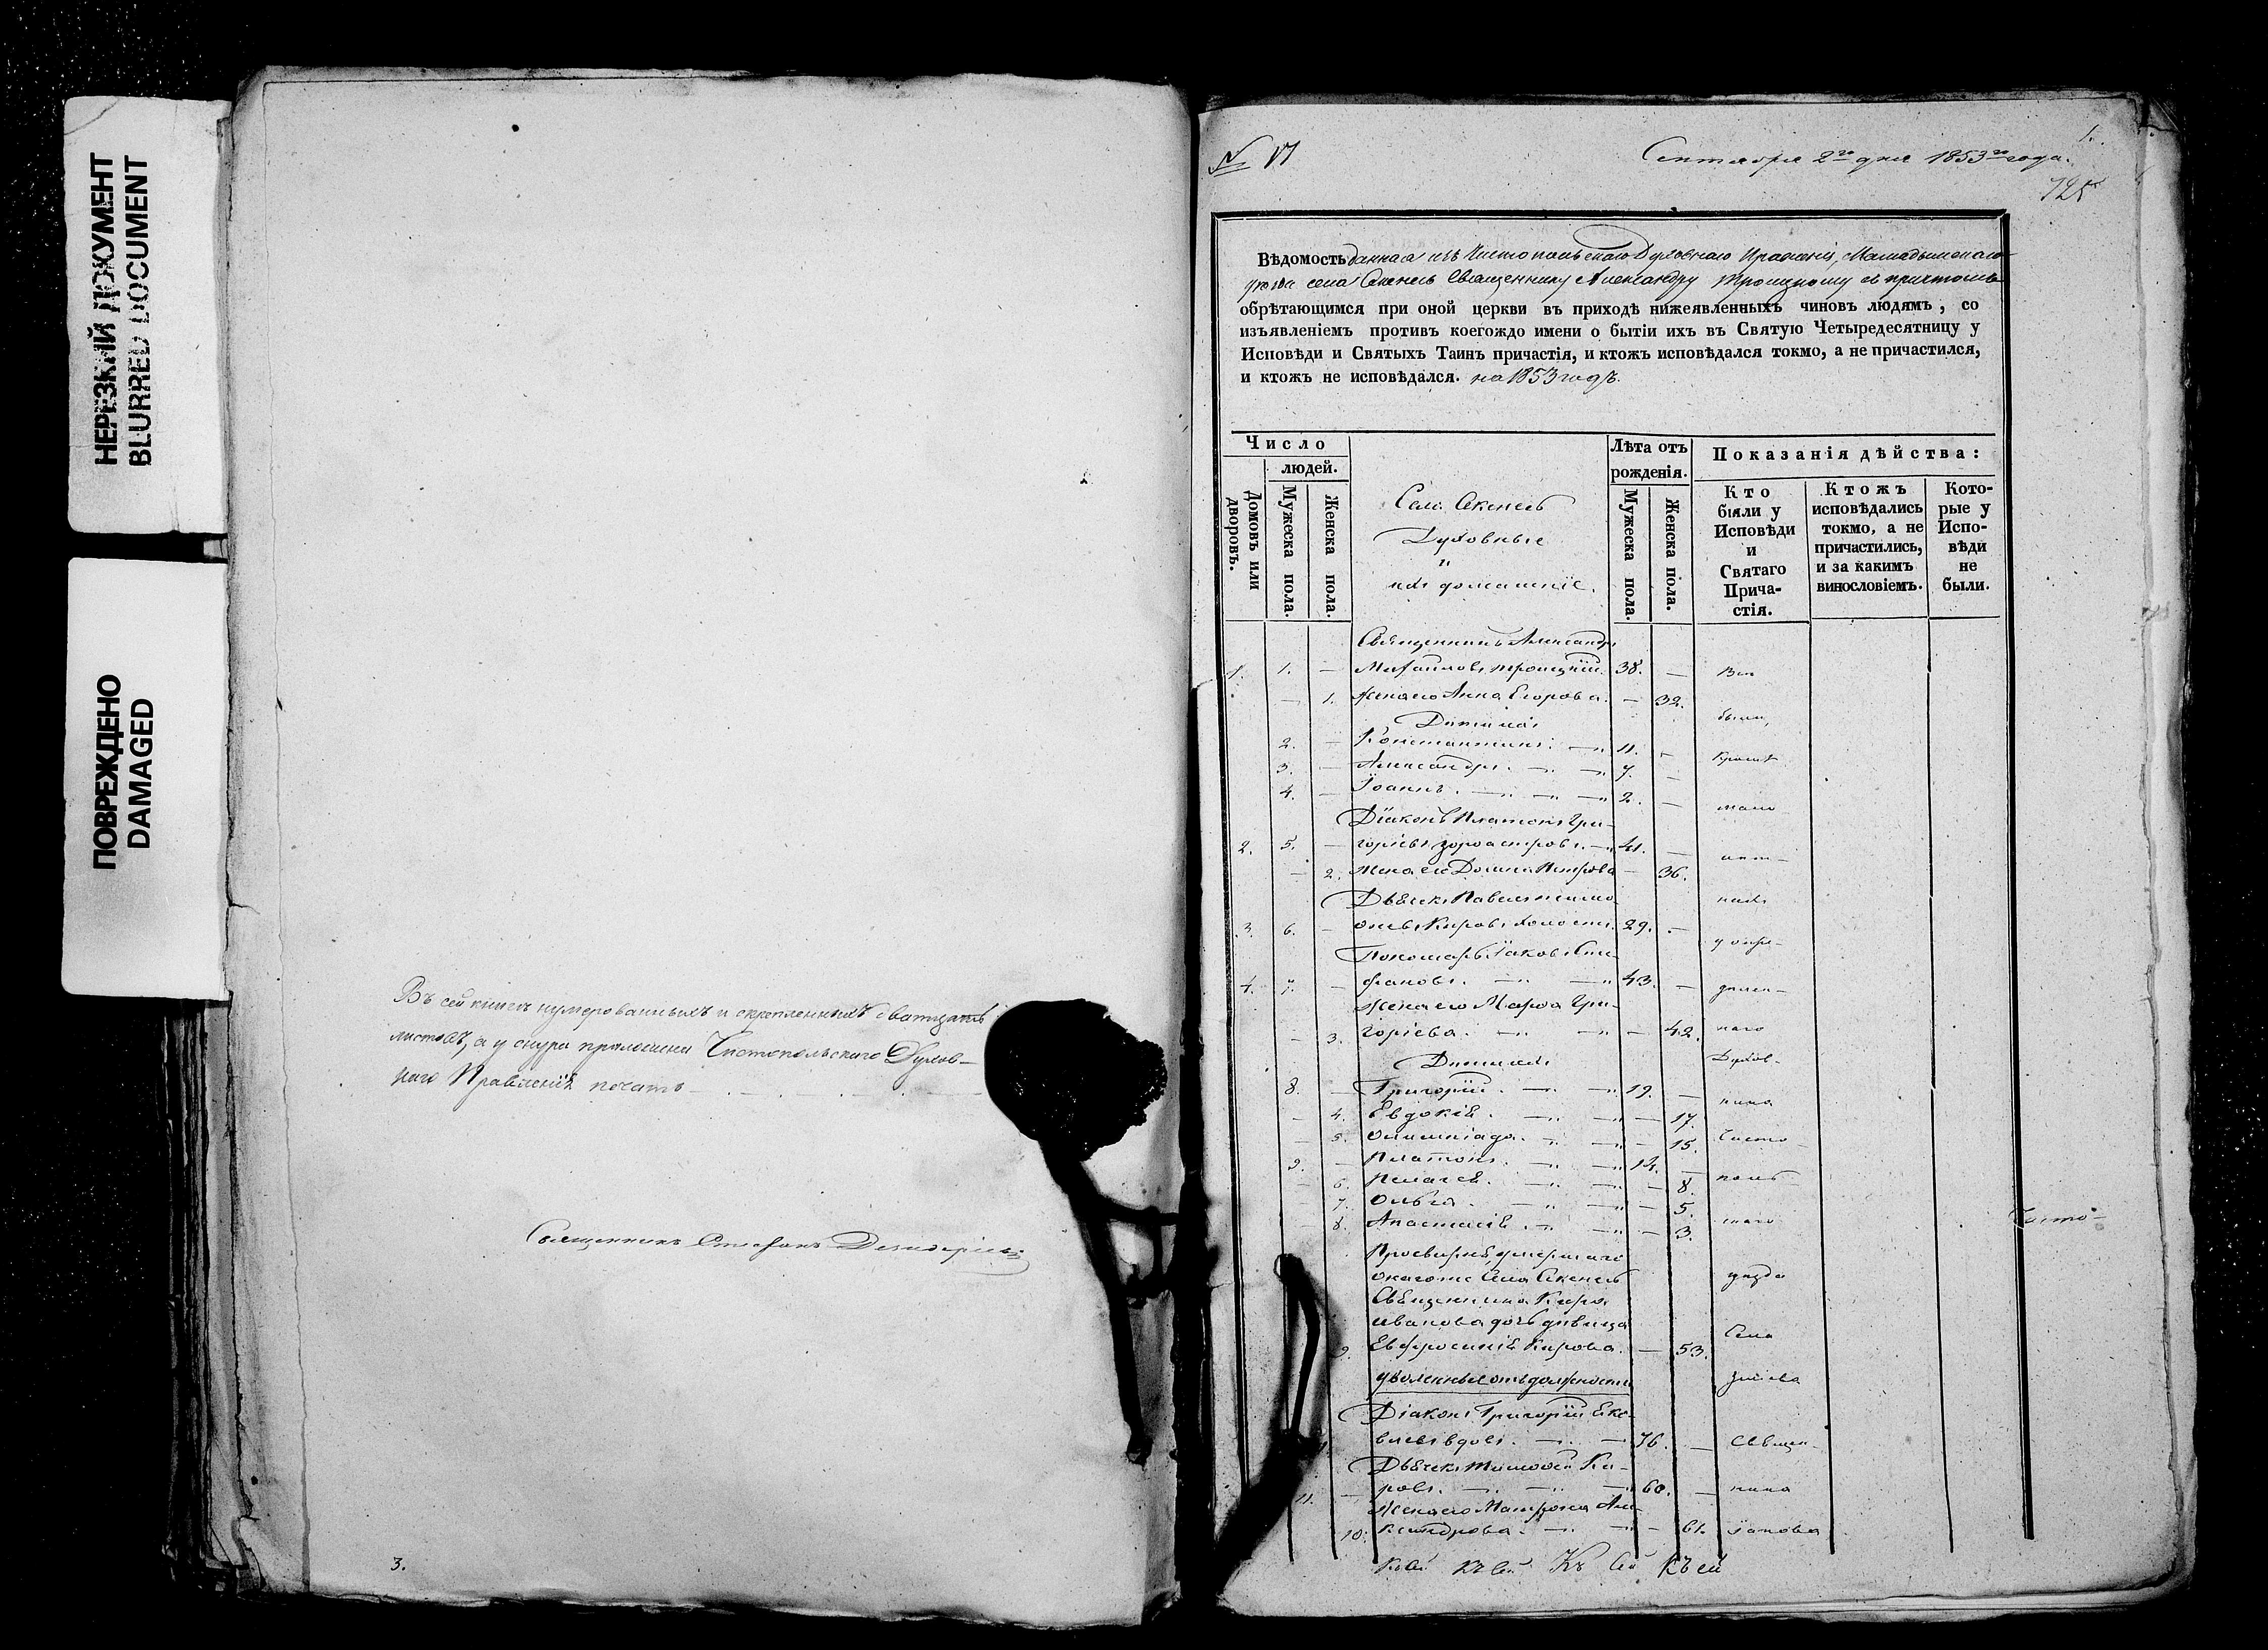 НЕРЕЗКИЙ ДОКУМЕНТ
BLURRED DOCUMENT
ПОВРЕЖДЕНО
DAMAGED
Въ сей книгѣ нумерованныхъ и скрѣпленныхъ дватцать
листовъ, а у снура приложена Чистопольскаго Духов-
наго Правленія печать
Священникъ Стефанъ
3.
№ VI
Сентября 2го дня 1853го года.
1.
725
Вѣдомость данная изъ Чистопольскаго Духовнаго Правленія, Мамадышскаго
уѣзда села Секенесь Священнику Александру Троицкому съ причтомъ
обрѣтающимся при оной церкви въ приходѣ нижеявленныхъ чиновъ людямъ, со
изъявленіемъ противъ коегождо имени о бытіи ихъ въ Святую Четыредесятницу у
Исповѣди и Святыхъ Таинъ причастія, и ктожъ исповѣдался токмо, а не причастился,
и ктожъ не исповѣдался. на 1853 годъ.
Число
людей.
Домовъ или дворовъ.
Мужеска пола.
Женска пола.
Село
Духовные
и
ихъ домашніе.
Лѣта отъ
рожденія.
Мужеска пола.
Женска пола.
Показанія дѣйства:
Кто
были у
Исповѣди
и
Святаго
Прича-
стія.
Ктожъ
исповѣдались
токмо, а не
причастились,
и за какимъ
винословіемъ.
Кото-
рые у
Испо-
вѣди
не
были.
Священникъ Александръ
1. 1. — Михайловъ Троицкій. 38. — Всѣ
— 1. Жена его Анна Егорова. — 32.
были,
Дѣти ихъ
2. — Константинъ. 11. —
3. — Александръ. 7. — кромѣ
4. — Іоаннъ. 2. —
мало
Діаконъ Платонъ Гри-
2. 5. — горьевъ 41. —
лѣт-
— 2. Жена его Петрова — 36.
Дьячекъ Павелъ Тимо-
нихъ
3. 6. — Кировъ холостъ. 29. —
у опре-
Пономарь Іаковъ Сте-
4. 7. — фановъ. 43. —
дѣлен-
Жена его Марѳа Гри-
— 3. горіева. — 42.
наго
Дѣти ихъ
Духов-
8. — Григорій. 19. —
ника
— 4. Евдокія. — 17.
— 5. Олимпіада. — 15.
Чисто-
9. — Платонъ. 14. —
— 6. Пелагея. — 8.
поль-
— 7. Ольга. — 5.
— 8. Анастасія. — 3.
скаго
Чисто-
Просвирня, умершаго
онагоже Села
уѣзда
Священника Кира
Иванова дочь дѣвица
Села
9. Евфросинія Кирова. — 53.
Уволенные отъ должности
Діаконъ Григорій
вдовъ. 76. —
Священ-
Дьячекъ Тимоѳей Ки-
11. — ровъ. 60. —
ника
Жена его Матрона Але-
10. ксандрова. — 61.
Іакова
Къ сей Къ сей Къ сей Къ сей